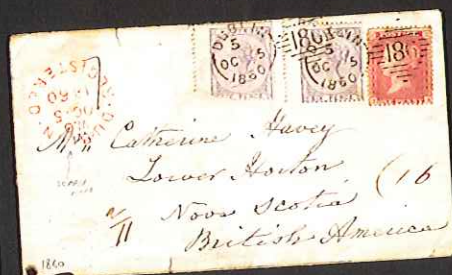 DUBLIN
5
OC 5
1860
186
DUBLIN
OC 5
1860
186
DUBLIN
OC 5
60
Catherine Havey
Lower Horton
Nova Scotia
British America
1860